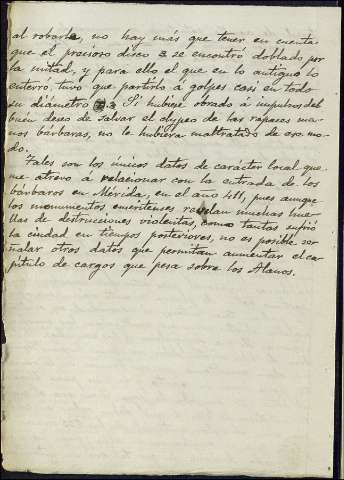 al robarla, no hay más que tener en cuenta
que el precioso disco se encontró doblado por
la mitad, y para ello el que en lo antiguo lo
enterró, tuvo que partirlo á golpes casi en todo
su diámetro. Si hubiese obrado á impulsos del
buen deseo de salvar el clypeo de las rapaces ma-
nos bárbaras, no le hubiera maltratado de ese mo-
do.
Tales son los únicos datos de carácter local que
me atrevo á relacionar con la entrada de los
bárbaros en Mérida, en el año 411, pues aunque
los monumentos emeritenses revelan muchas hue-
llas de destrucciones violentas, como tantas sufrió
la ciudad en tiempos posteriores, no es posible se-
ñalar otros datos que permitan aumentar el ca-
pítulo de cargos que pesa sobre los Alanos.